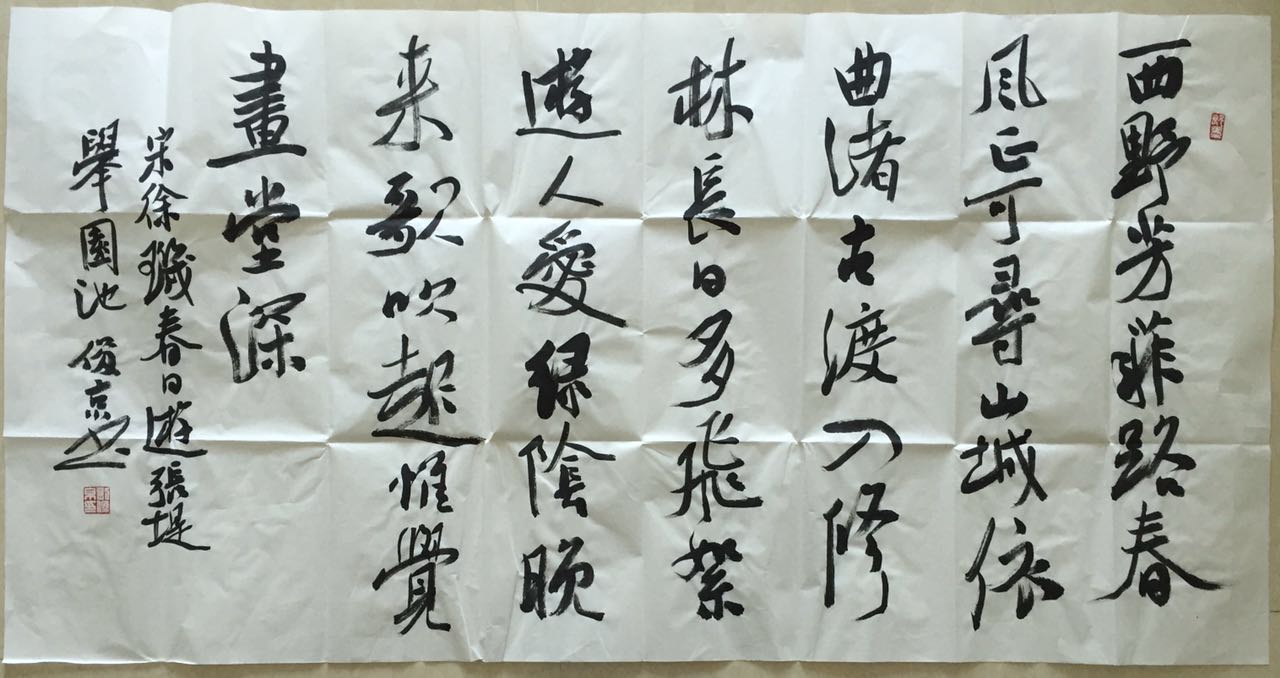 西野芳菲路春
风正可尋山城依
曲渚古渡入修
林長日多飛絮
遊人愛緑陰晚
来歌吹起惟覺
畫堂深
宋徐璣春日遊張堤
舉園池 俊京書